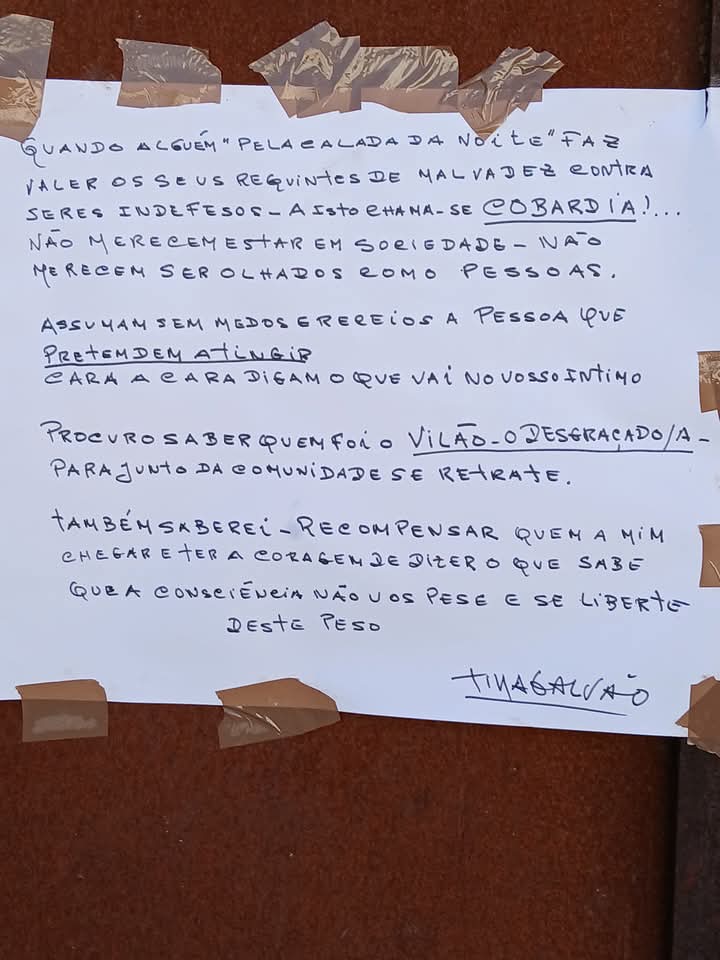 QUANDO ALGUÉM "PELA CALADA DA NOITE" FAZ
VALER OS SEUS REQUINTES DE MALVADEZ CONTRA
SERES INDEFESOS - A ISTO CHAMA-SE COBARDIA!...
NÃO MERECEM ESTAR EM SOCIEDADE - NÃO
MERECEM SER OLHADOS COMO PESSOAS.
ASSUMAM SEM MEDOS E RECEIOS A PESSOA QUE
PRETEMDEM ATINGIR
CARA A CARA DIGAM O QUE VAI NO VOSSO INTIMO
PROCURO SABER QUEM FOI O VILÃO - O DESGRAÇADO/A -
PARA JUNTO DA COMUNIDADE SE RETRATE.
TAMBÉM SABEREI - RECOMPENSAR QUEM A MIM
CHEGAR E TER A CORAGEM DE DIZER O QUE SABE
QUE A CONSCIÊNCIA NÃO VOS PESE E SE LIBERTE
DESTE PESO
TINA GALVÃO